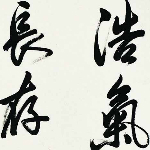 浩氣
長存